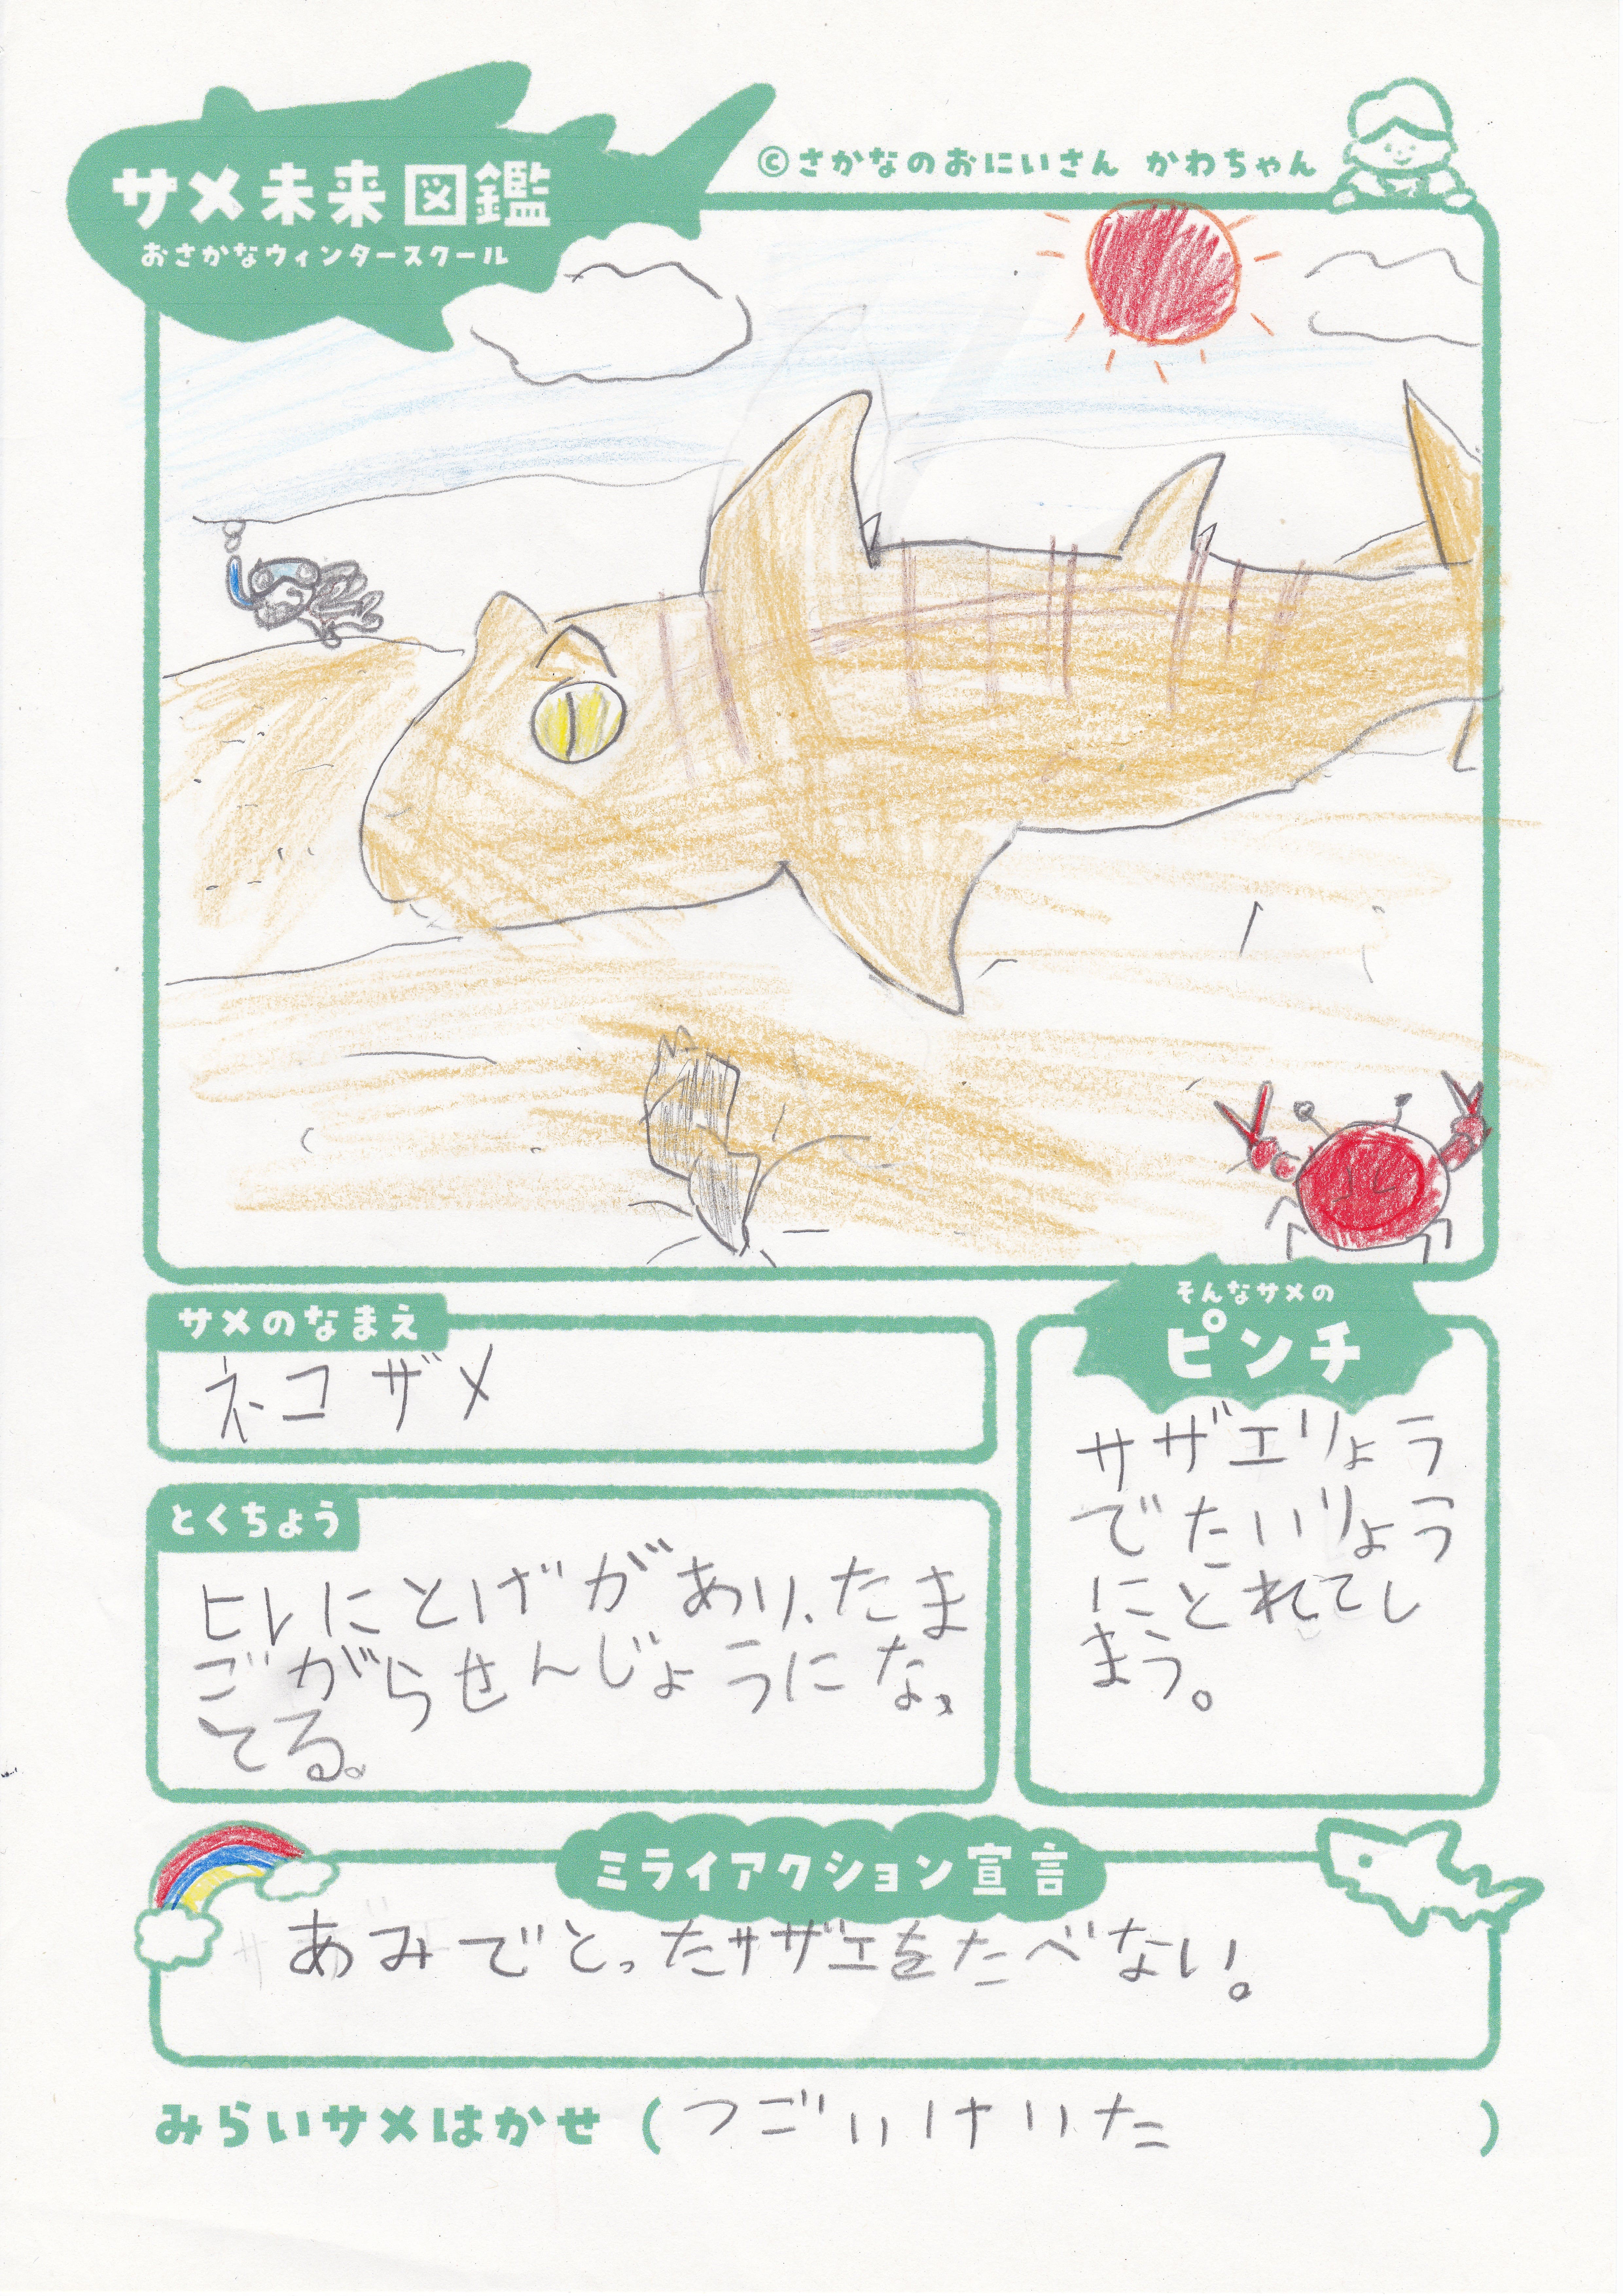 サメ未来図鑑
おさかなウィンタースクール
©さかなのおにいさん かわちゃん
サメのなまえ
ネコザメ
とくちょう
ヒレにとげがあり、たま
ごがらせんじょうになっ
てる。
そんなサメの
ピンチ
サザエりょう
でたいりょう
にとれてし
まう。
ミライアクション宣言
あみでとったサザエをたべない。
みらいサメはかせ（つごいけいた）